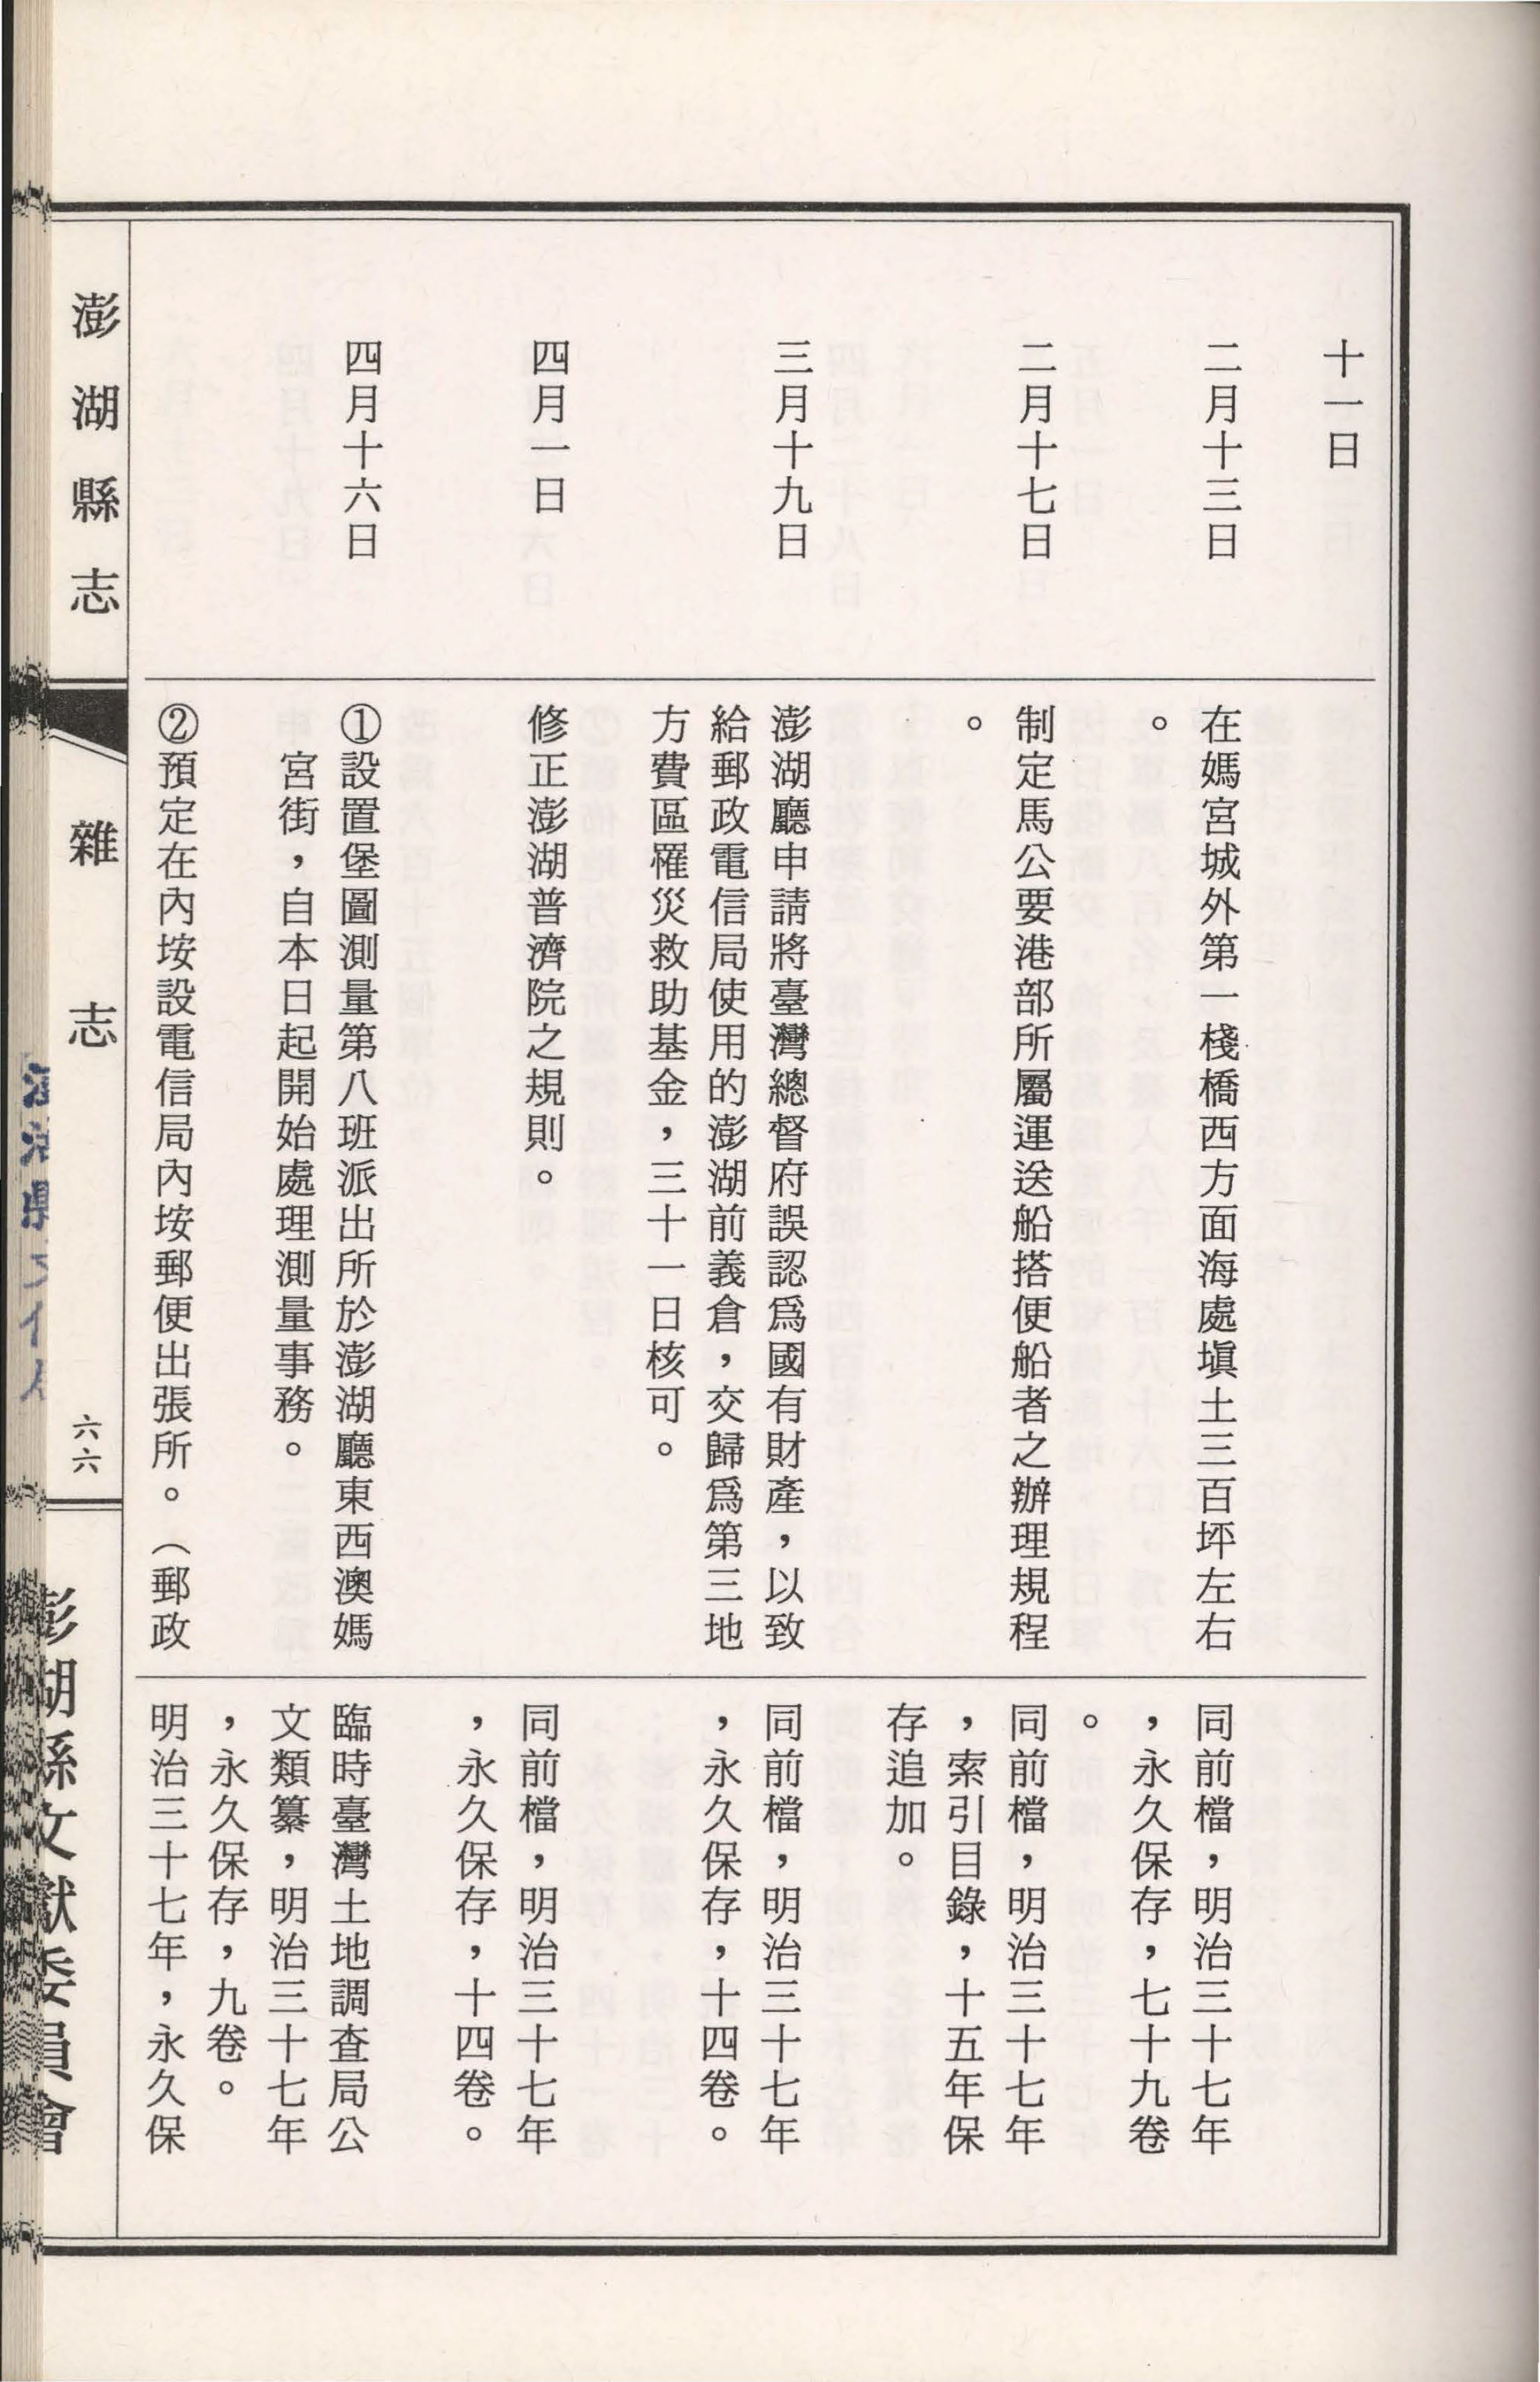 十一日
二月十三日
在媽宮城外第一棧橋西方面海處塡土三百坪左右
。
同前檔，明治三十七年
，永久保存，七十九卷
。
二月十七日
制定馬公要港部所屬運送船搭便船者之辦理規程
。
同前檔，明治三十七年
，索引目錄，十五年保
存追加。
三月十九日
澎湖廳申請將臺灣總督府誤認爲國有財產，以致
給郵政電信局使用的澎湖前義倉，交歸爲第三地
方費區罹災救助基金，三十一日核可。
同前檔，明治三十七年
，永久保存，十四卷。
四月一日
修正澎湖普濟院之規則。
同前檔，明治三十七年
，永久保存，十四卷。
四月十六日
①設置堡圖測量第八班派出所於澎湖廳東西澳媽
宮街，自本日起開始處理測量事務。
臨時臺灣土地調查局公
文類纂，明治三十七年
，永久保存，九卷。
②預定在內垵設電信局內垵郵便出張所。（郵政
明治三十七年，永久保
澎湖縣志
雜志
六六
澎湖縣文獻委員會